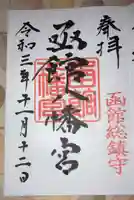 奉拝
函館総鎮守
函館八幡宮
令和三年十一月十二日